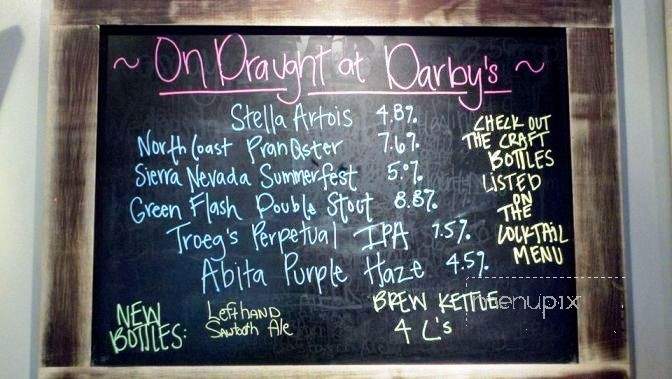 ~ On Draught at Darby's ~
Stella Artois 4.8%
North Coast PranQster 7.6%
Sierra Nevada Summerfest 5.0%
Green Flash Double Stout 8.8%
Troeg's Perpetual IPA 7.5%
Abita Purple Haze 4.5%
CHECK OUT
THE CRAFT
BOTTLES
LISTED
ON
THE
COCKTAIL
MENU
NEW
BOTTLES:
Lefthand
Sawtooth Ale
BREW KETTLE
4 C's
menupix